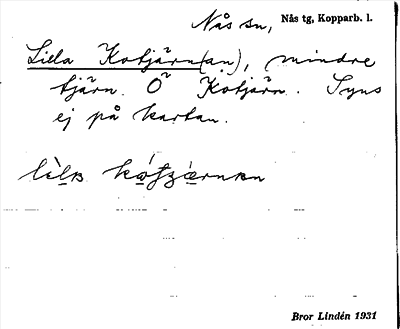 Nås sn, Nås tg, Kopparb. l.
Lilla Kotjärn(an), mindre
tjärn. O Kotjärn. Syns
ej på kartan.
Bror Lindén 1931